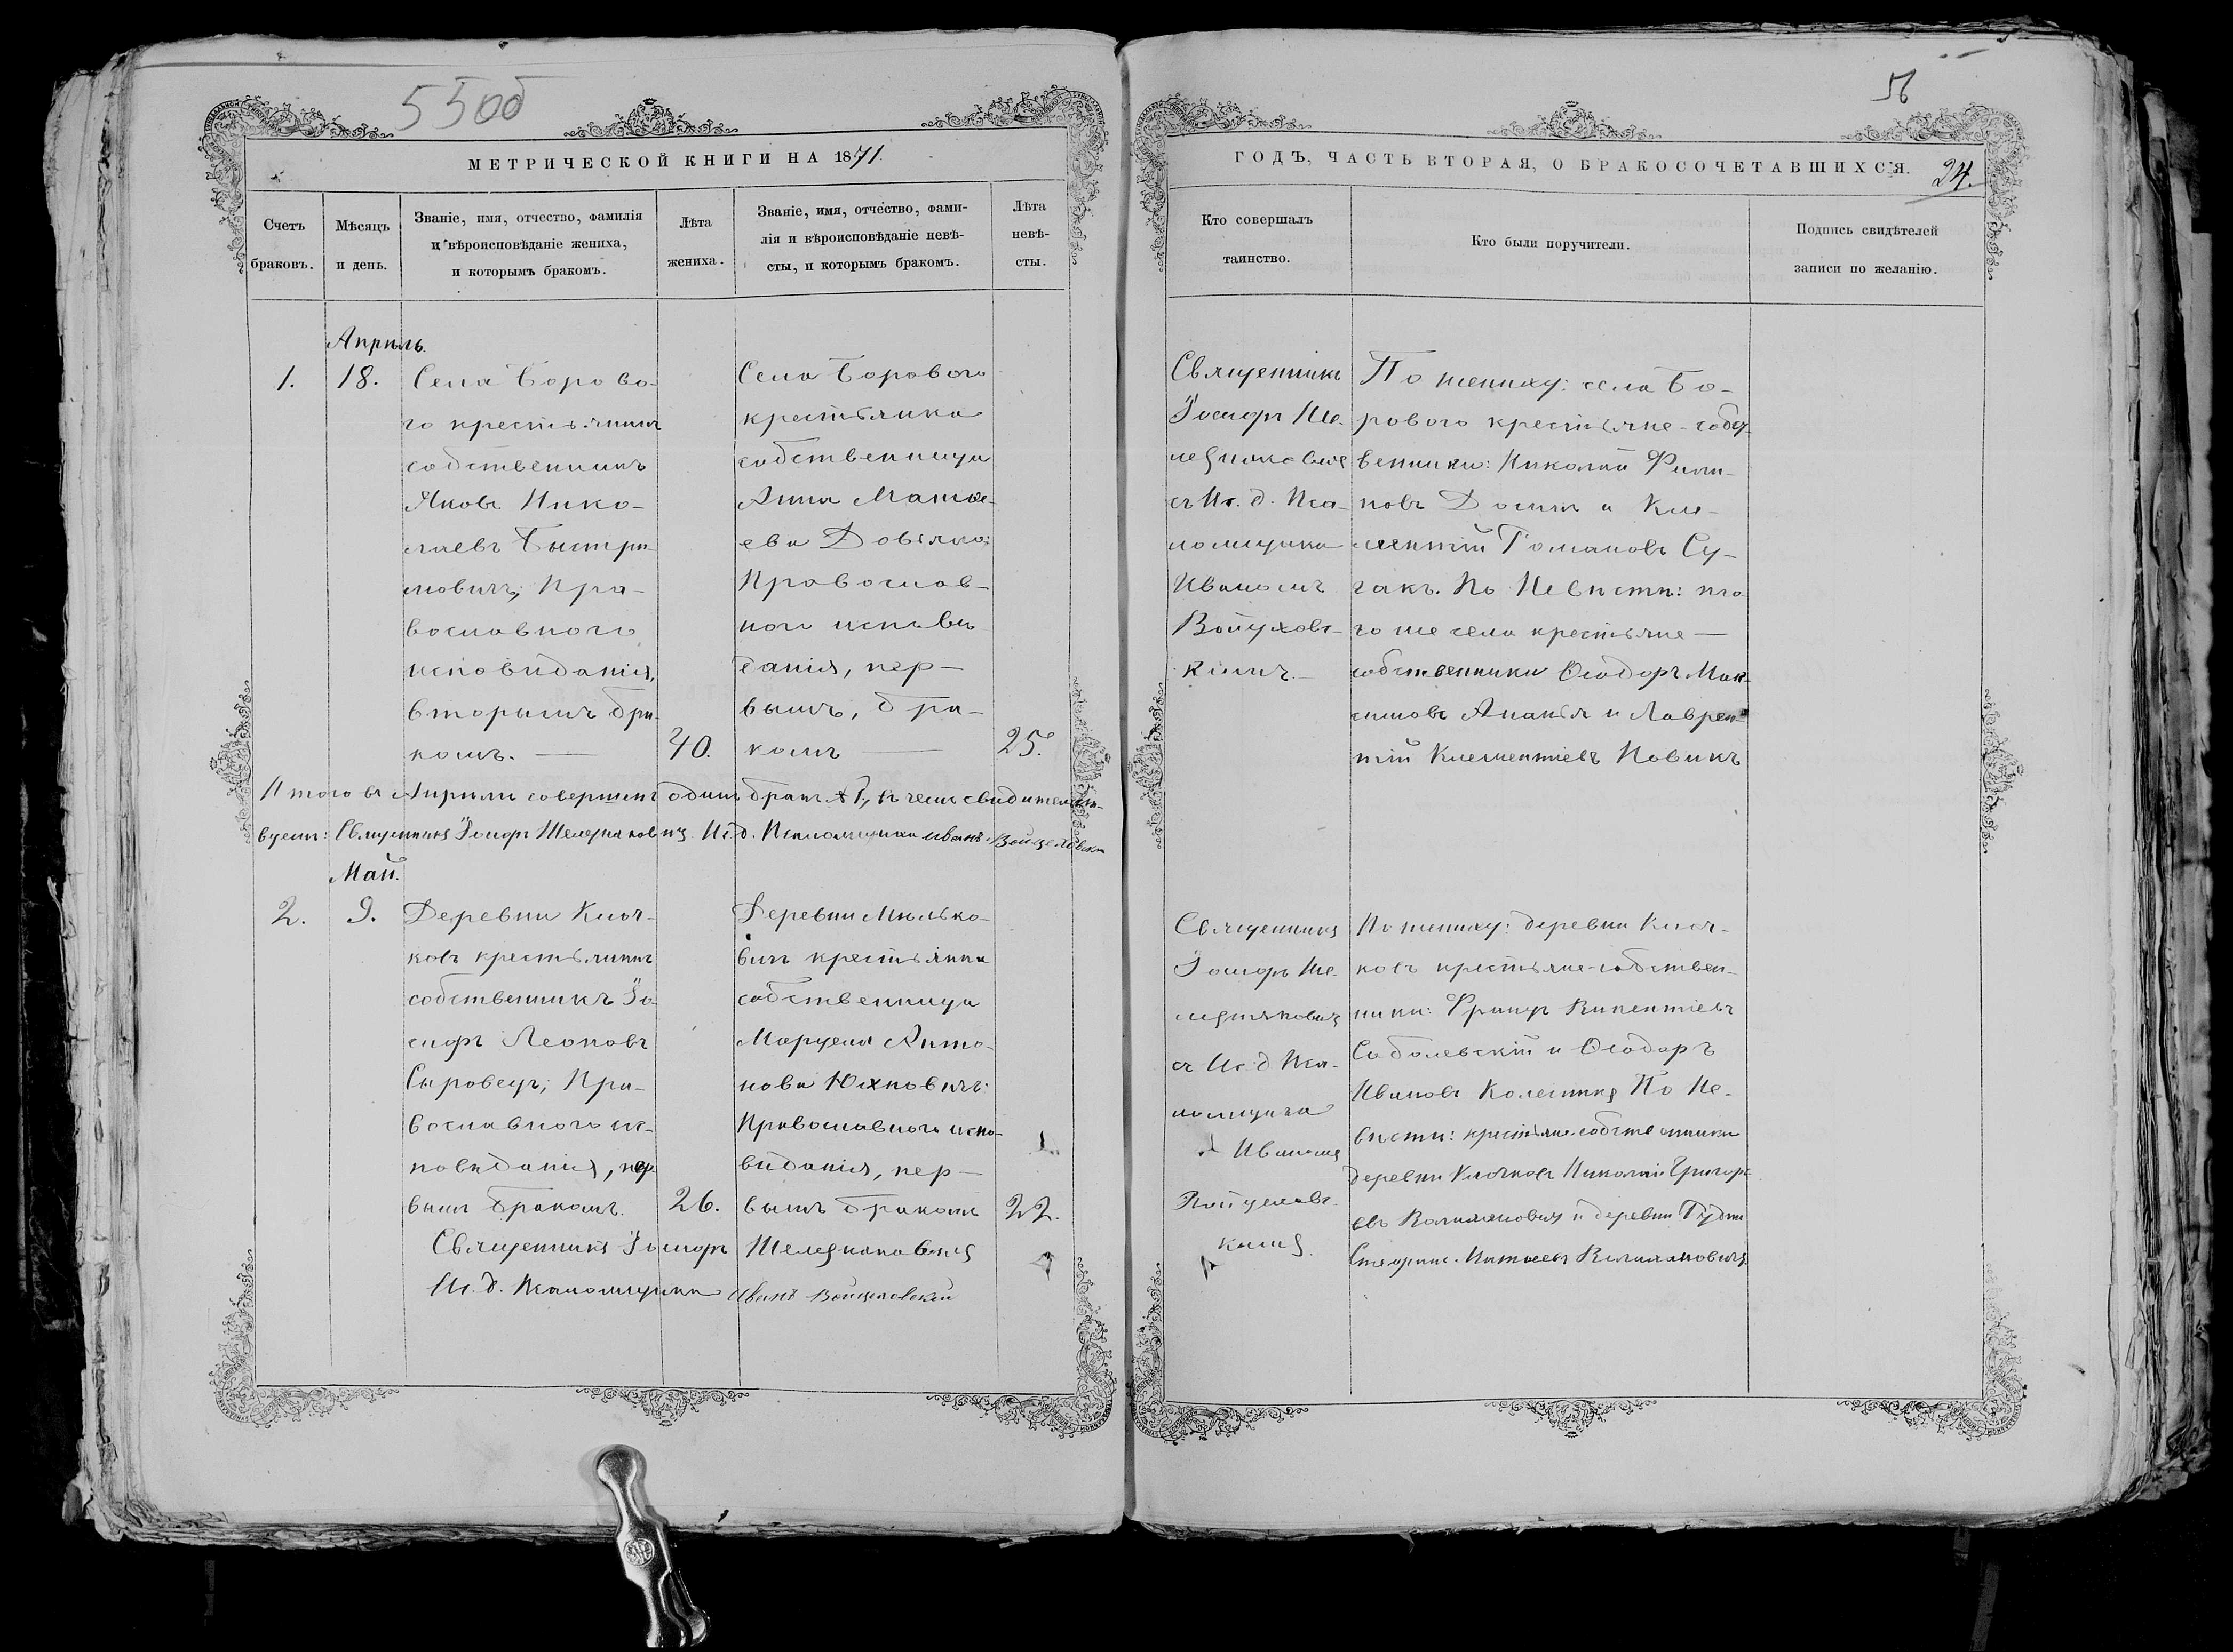 55об
МЕТРИЧЕСКОЙ КНИГИ НА 1871.
Счетъ
браковъ.
Мѣсяцъ
и день.
Званіе, имя, отчество, фамилія
и вѣроисповѣданіе жениха,
и которымъ бракомъ.
Лѣта
жениха.
Званіе, имя, отчество, фами-
лія и вѣроисповѣданіе невѣ-
сты, и которымъ бракомъ.
Лѣта
невѣ-
сты.
Апрѣль.
1.
18.
Села Борово-
го крестьянинъ
собственникъ
Яковъ Нико-
лаевъ Быстри-
мовичъ; Пра-
вославного
исповѣданія,
вторымъ бра-
комъ.
40.
Села Борового
крестьянка
собственница
Анна Матѳе-
ева Довьяко;
Православ-
ного исповѣ
данія, пер-
вымъ, бра-
комъ
25.
Итого въ Апрѣлѣ совершенъ одинъ бракъ № 1, въ чемъ свидѣтельст-
вуемъ: Священникъ Іосифъ Шелепяковичъ. И. д. Псаломщика Иванъ Войцеховскій
Май.
2.
9.
Деревни Ключ-
ковъ крестьянинъ
собственникъ Іо-
сифъ Леоновъ
Сыровецъ; Пра-
вославного ис-
повѣданія, пер
вымъ бракомъ.
26.
Деревни Милько-
вичъ крестьянка
собственница
Марцеля Анто-
нова Юхновичъ:
Православного испо-
вѣданія, пер-
вымъ бракомъ
22.
Священникъ Іосифъ
И. д. Псаломщика Иванъ Войцеховскій
56
ГОДЪ, ЧАСТЬ ВТОРАЯ, О БРАКОСОЧЕТАВШИХСЯ.
24.
Кто совершалъ
таинство.
Кто были поручители.
Подпись свидѣтелей
записи по желанію.
Священникъ
Іосифъ Ше-
съ И. д. Пса-
ломщика
Иваномъ
Войцехов-
кимъ.
По жениху: села Бо-
рового крестьяне-собст-
венники: Николай Фили-
повъ Досинъ и Кле-
ментій Романовъ Су-
гакъ. По Невѣстѣ: то-
го же села крестьяне-
собственники Ѳеодоръ Мак-
симовъ Ананья и Лаврен-
тій Клементіевъ Новикъ
Священникъ
Іосифъ Ше-
съ И. д. Пса-
ломщика
Иваномъ
кимъ.
По жениху: деревни Ключ-
ковъ крестьяне-собствен-
ники: Францъ Викентіевъ
Соболевскій и Ѳеодоръ
Ивановъ Колесникъ По Не-
вѣстѣ: крестьяне-собственники
деревни Ключковъ Николай Григорь
евъ и деревни Гудни